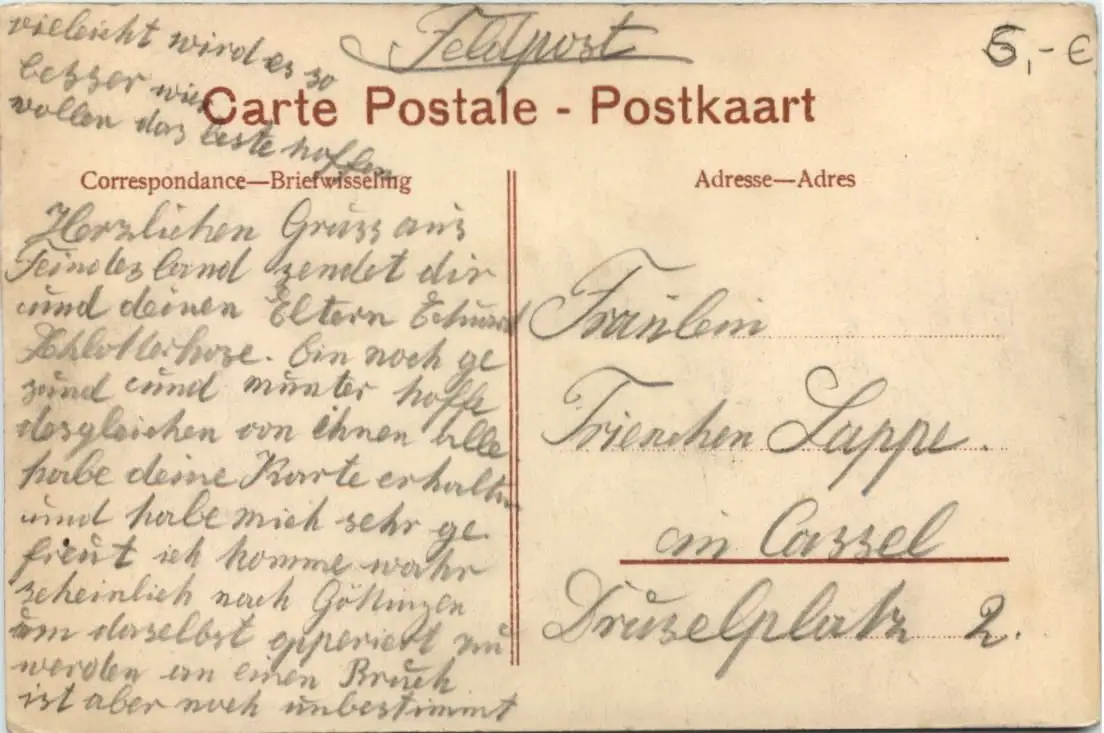 Feldpost
5,- €
Carte Postale - Postkaart
Correspondance—Briefwisseling
Adresse—Adres
Herzlichen Gruss aus
Feindesland sendet dir
und deinen Eltern Eduard
Schlotterhose. bin noch ge
sund und munter hoffe
desgleichen von ihnen alle
habe deine Karte erhalten
und habe mich sehr ge
freut ich komme wahr
scheinlich nach Göttingen
um daselbst opperiert zu
werden an einen Bruch
ist aber noch unbestimmt
vieleicht wird es so
besser wir
wollen das beste hoffen
Fräulein
Trienchen Lappe.
in Cassel
Druselplatz 2.